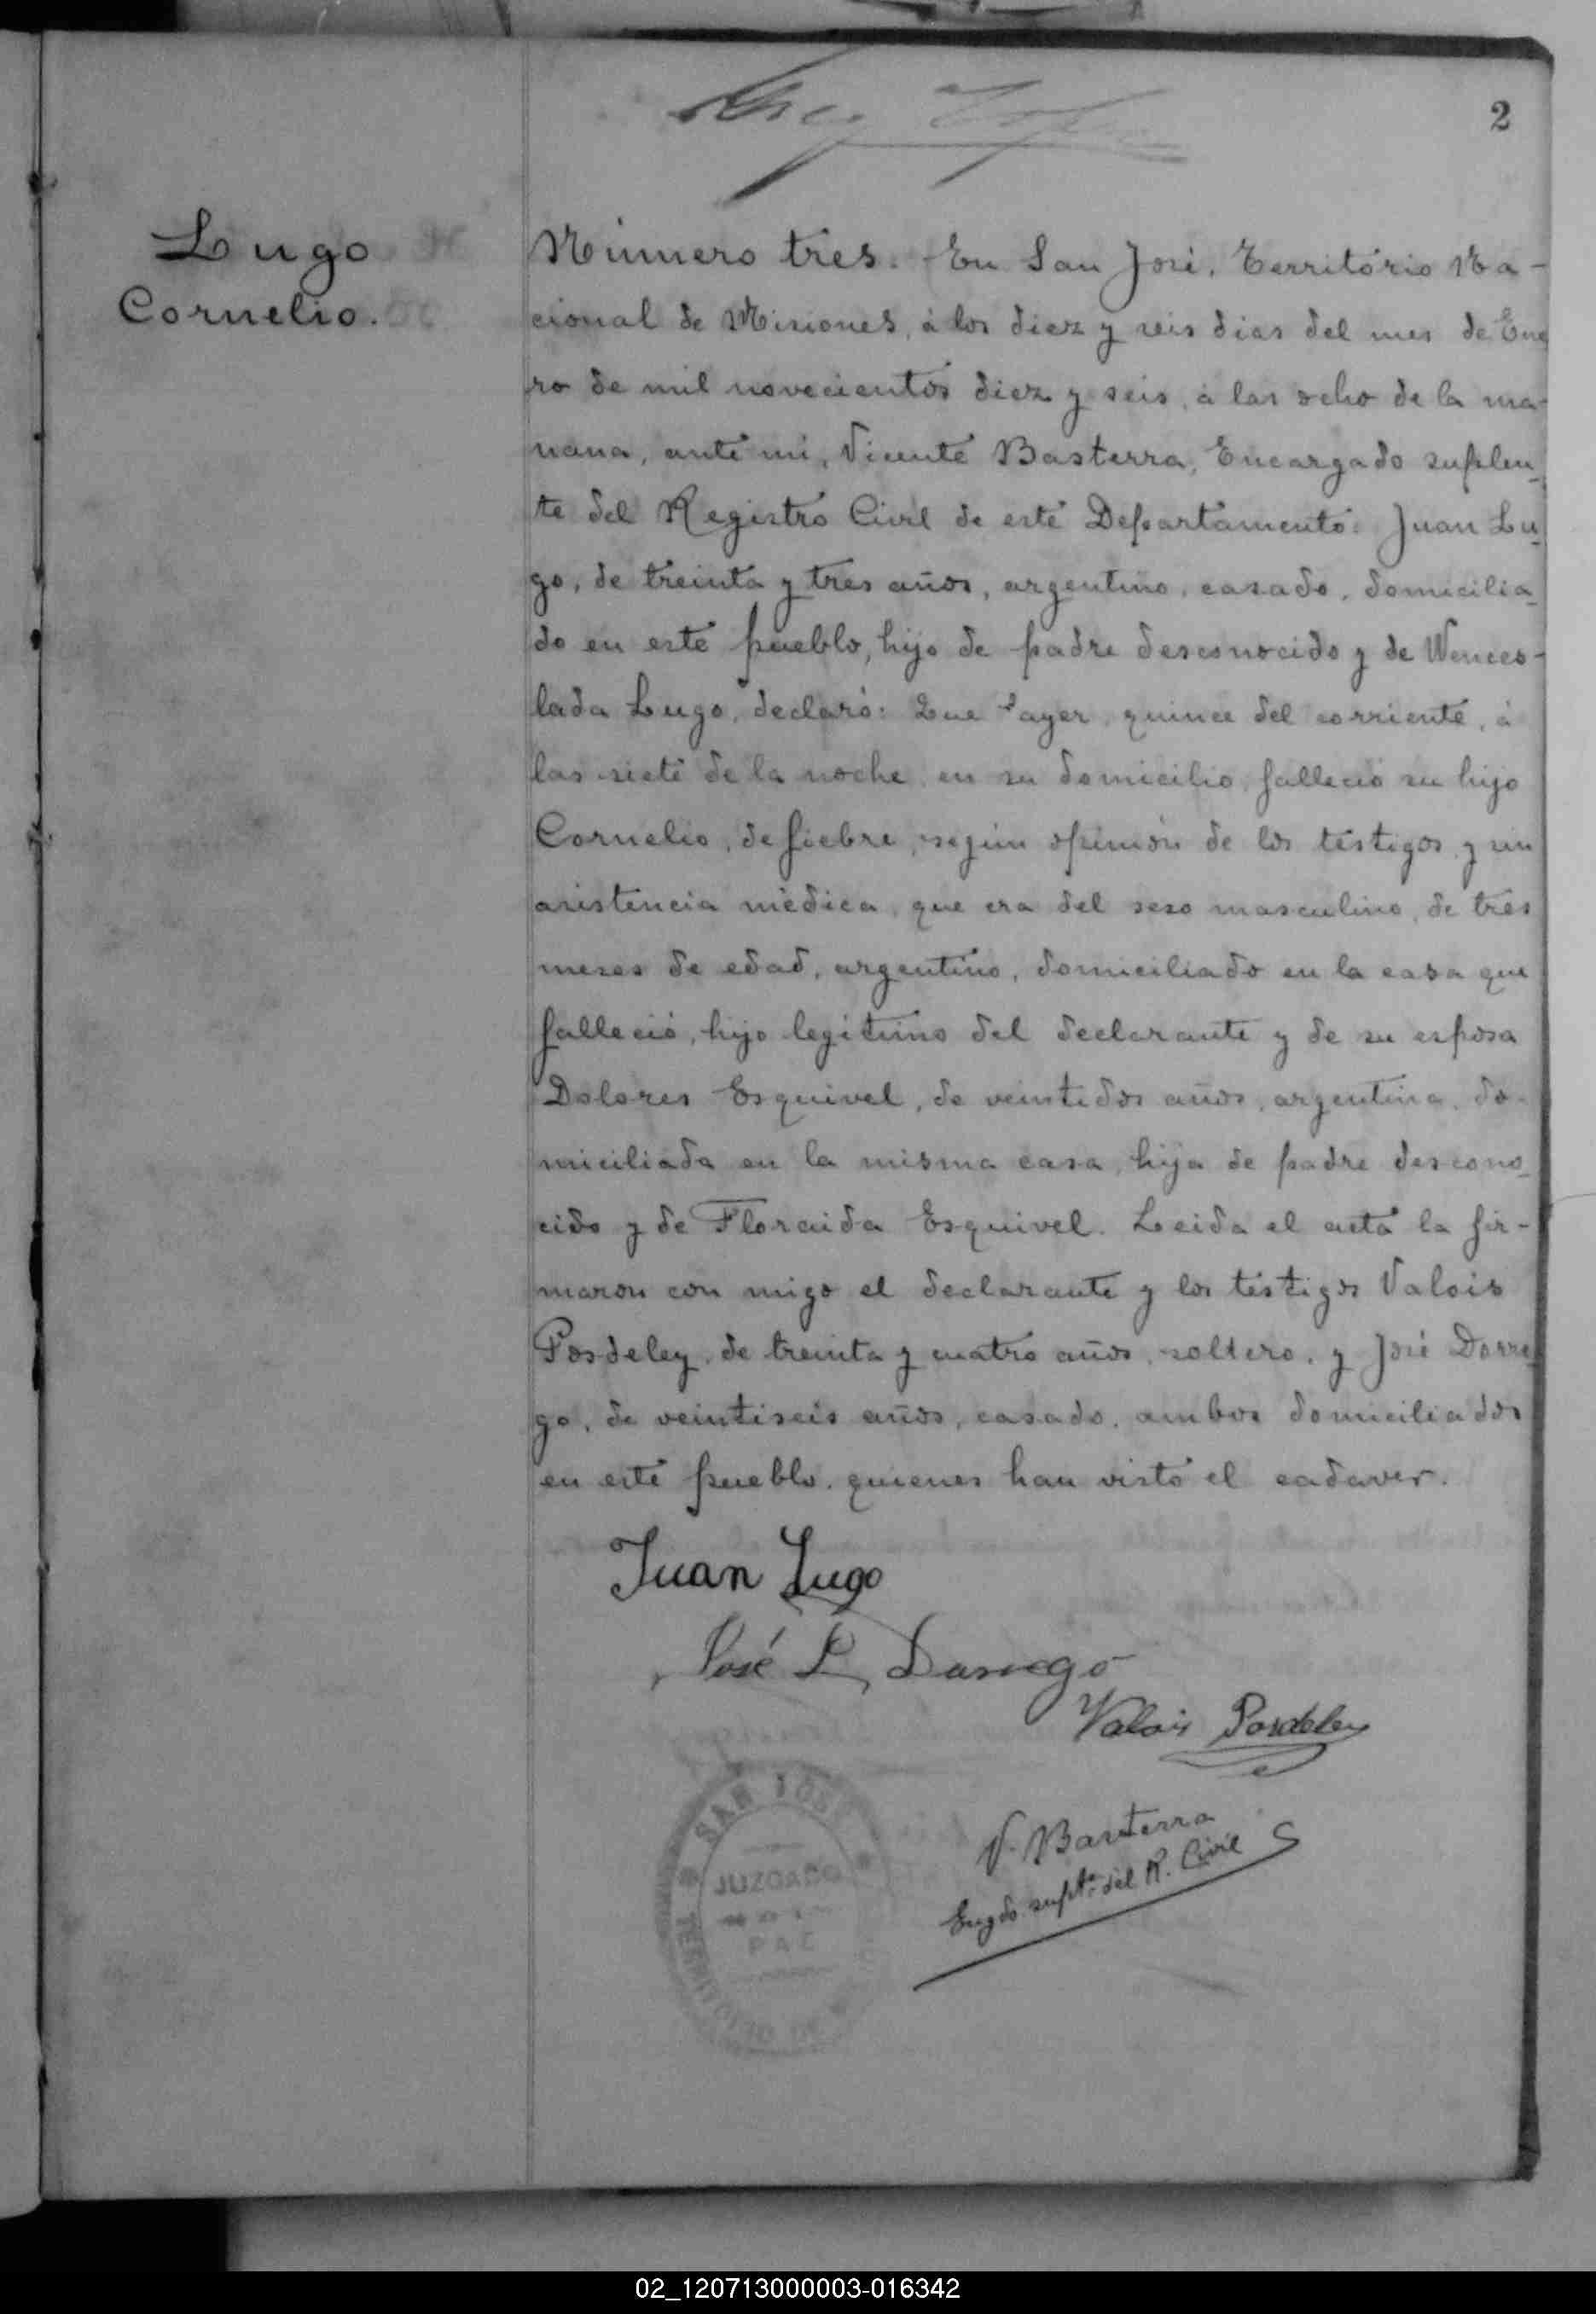 2
Lugo
Cornelio.
Número tres. En San José, Território Na-
cional de Misiones, á los diez y seis dias del mes de Ene
ro de mil novecientos diez y seis, á las ocho de la ma-
nana, ante mi, Vicente Basterra, Encargado suplen-
te del Registro Civil de este Departamento: Juan Lu-
go, de treinta y tres años, argentino, casado, domicilia-
do en este pueblo, hijo de padre desconocido y de Wences-
lada Lugo, declaró: Que ayer, quince del corriente, á
las siete de la noche, en su domicilio, falleció su hijo
Cornelio, de fiebre, según opinión de los testigos y sin
asistencia médica, que era del sexo masculino, de tres
meses de edad, argentino, domiciliado en la casa que
falleció, hijo legitimo del declarante y de su esposa
Dolores Esquivel, de veintidos años, argentina, do-
miciliada en la misma casa, hija de padre descono-
cido y de Floraida Esquivel. Leida el acta la fir-
maron con migo el declarante y los testigos Valois
Posdeley, de treinta y cuatro años, soltero, y José Dorre-
go, de veintiseis años, casado, ambos domiciliados
en este pueblo, quienes han visto el cadaver.
Juan Lugo
José L. Dorrego
Valois Posdeley
V. Basterra
Engdo supte. del R. Civil
SAN JOSÉ
JUZGADO
DE
PAZ
TERRITORIO DE
02_120713000003-016342